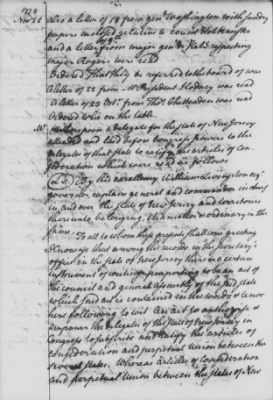 1778
Nov. 25
Also a letter of 18 from genl Washington with sundry
papers enclosed relative to
and a letter from major genl de Kalb respecting
major Rogers were read
Ordered That they be referred to the board of war
A letter of 22 from Mr President Rodney was read
A letter of 23 Octr from Thos Chittenden was read
Ordered to lie on the table.
Mr a delegate for the state of New Jersey
attended and laid before Congress powers to the
delegates of that state to ratify the articles of Con
federation which were read as follows
By his excellency William Livingston esqr
governor, captain general and commander in chief
in and over the state of New Jersey and territories
thereunto belonging, chancellor & ordinary in the
same.
To all to whom these presents shall come greeting
Know ye that among the records in the secretary's
office in the state of New Jersey there is a certain
instrument of writing purporting to be an act of
the council and general assembly of the said state
which said act is contained in the words & tenor
here following to wit An act to authorize &
impower the delegates of the state of New Jersey in
Congress to subscribe and ratify the articles of
confederation and perpetual Union between the
several states. Whereas articles of Confederation
and perpetual Union between the states of New